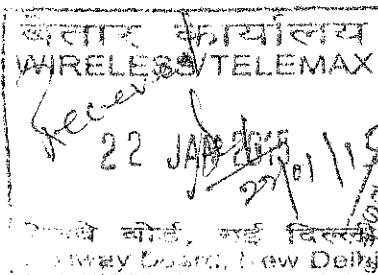 बेतार कार्यालय
WIRELESS/TELEMAX
Received
22 JAN 2015
22/01/15
रेलवे बोर्ड, नई दिल्ली
Railway Board, New Delhi